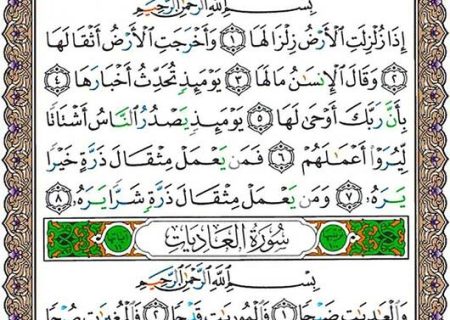 بِسْمِ اللَّهِ الرَّحْمَٰنِ الرَّحِيمِ
إِذَا زُلْزِلَتِ الْأَرْضُ زِلْزَالَهَا ١ وَأَخْرَجَتِ الْأَرْضُ أَثْقَالَهَا
٢ وَقَالَ الْإِنسَانُ مَا لَهَا ٣ يَوْمَئِذٍ تُحَدِّثُ أَخْبَارَهَا ٤
بِأَنَّ رَبَّكَ أَوْحَىٰ لَهَا ٥ يَوْمَئِذٍ يَصْدُرُ النَّاسُ أَشْتَاتًا
لِّيُرَوْا أَعْمَالَهُمْ ٦ فَمَن يَعْمَلْ مِثْقَالَ ذَرَّةٍ خَيْرًا
يَرَهُ ٧ وَمَن يَعْمَلْ مِثْقَالَ ذَرَّةٍ شَرًّا يَرَهُ ٨
سُورَةُ الْعَادِيَاتِ
بِسْمِ اللَّهِ الرَّحْمَٰنِ الرَّحِيمِ
وَالْعَادِيَاتِ ضَبْحًا ١ فَالْمُورِيَاتِ قَدْحًا ٢ فَالْمُغِيرَاتِ صُبْحًا